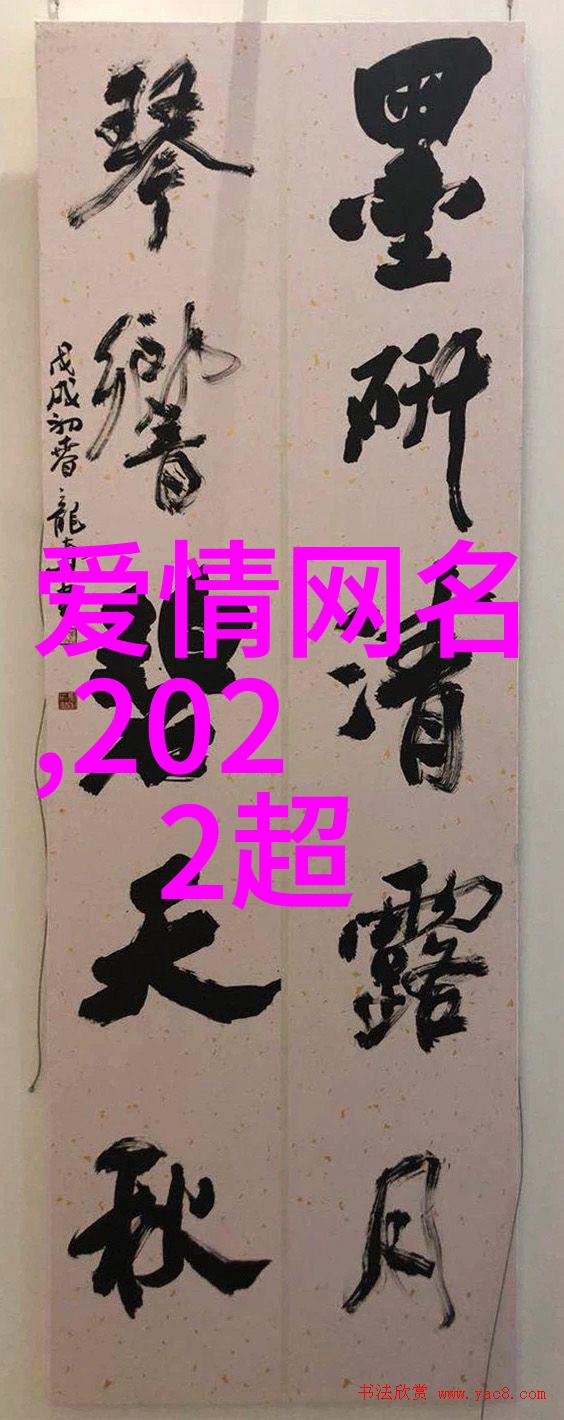 墨研清露月
琴響天秋
戊戌初春龍
爱情网名
,202
2超
书法欣赏 www.yac8.com